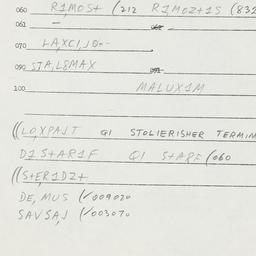 060 R1MOS+ (212 R1MOZ+1S (832
061 —
070 LAXCI,JO--
090 STA,L8MAX
100 MALUX1M
((LO,XPAJT QI STOLIERISHER TERMIN
D1S+AR1F QI S+ARF (060
((S+ER1DZ+
DE,MUS (/009020
SAVSAJ (/003070